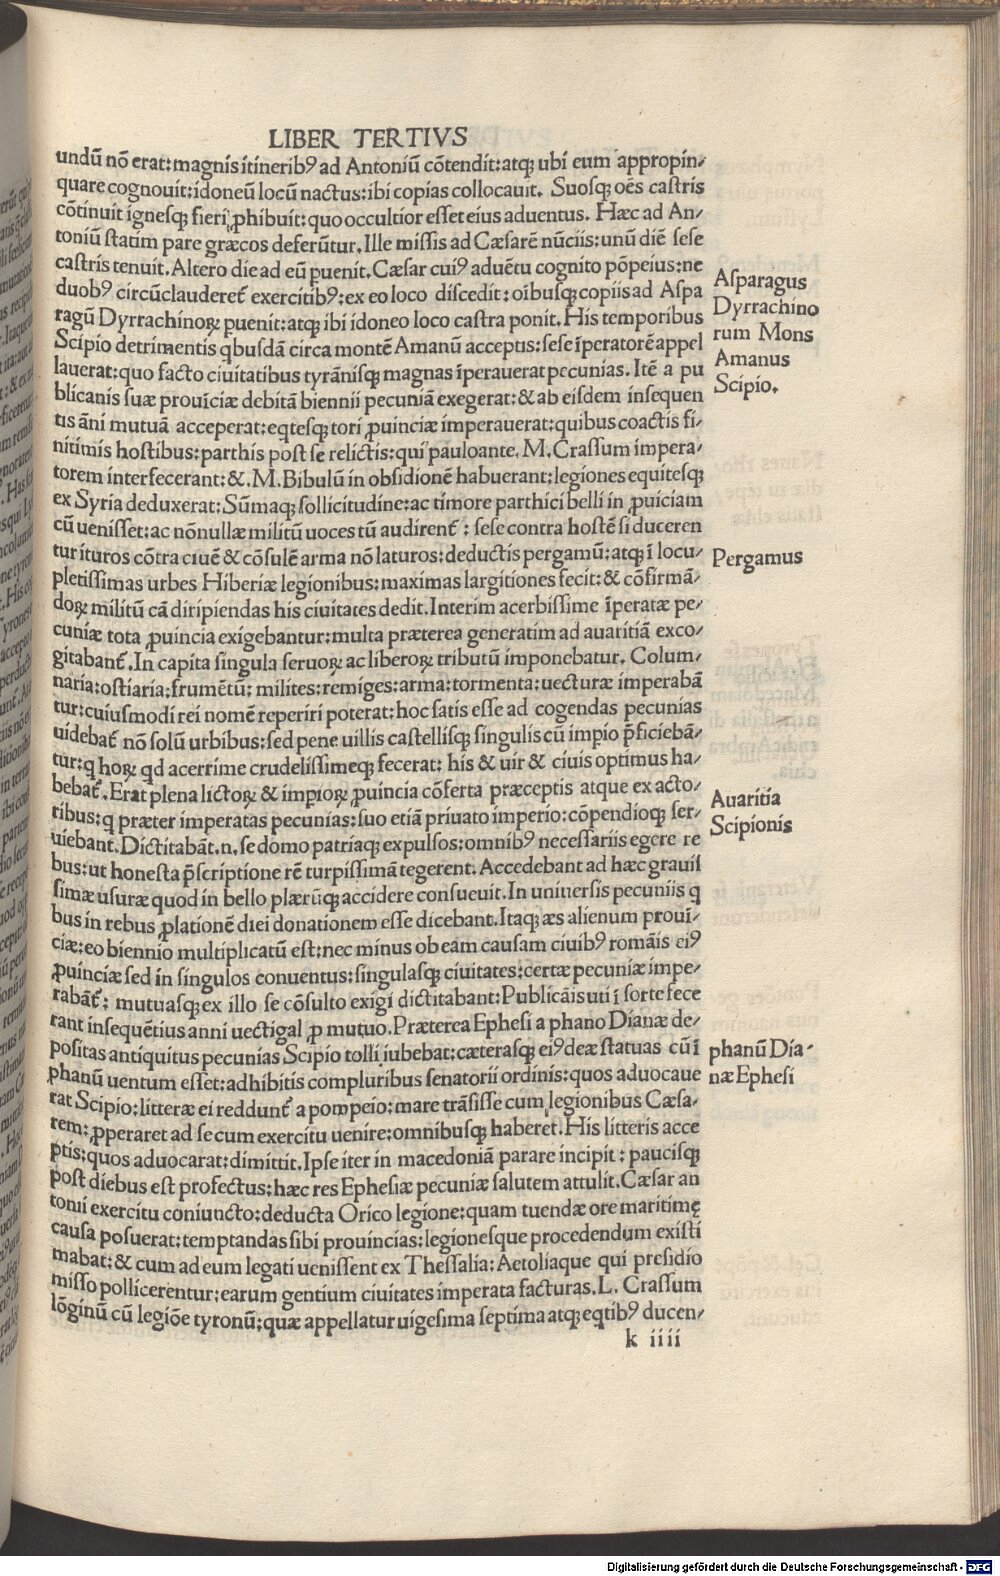 LIBER TERTIVS
undū nō erat: magnis itineribꝰ ad Antoniū cōtendit: atqꝫ ubi eum appropin⸗
quare cognouit: idoneū locū nactus: ibi copias collocauit. Suosqꝫ oēs caſtris
cōtinuit igneſqꝫ fieri ꝓhibuit: quo occultior eſſet eius aduentus. Hæc ad An⸗
toniū ſtatim ꝑe græcos deferūtur. Ille miſſis ad Cæſarē nūciis: unū diē ſeſe
caſtris tenuit. Altero die ad eū ꝑuenit. Cæſar cuiꝰ aduētu cognito pōpeius: ne
duobꝰ circūclauderet̄ exercitibꝰ: ex eo loco diſcedit: oībuſqꝫ copiis ad Aſpa
ragū Dyrrachinoꝝ ꝑuenit: atqꝫ ibi idoneo loco caſtra ponit. His temporibus
Scipio detrimentis qbuſdā circa montē Amanū acceptis: ſeſe īperatorē appel
lauerat: quo facto ciuitatibus tyrāniſqꝫ magnas īperauerat pecunias. Itē a pu
blicanis ſuæ prouīciæ debitā biennii pecuniā exegerat: & ab eiſdem inſequen
tis āni mutuā acceperat: eqteſqꝫ tori ꝓuinciæ imperauerat: quibus coactis fi⸗
nitimis hoſtibus: parthis poſt ſe relictis: qui pauloante. M. Craſſum impera⸗
torem interfecerant: &. M. Bibulū in obſidionē habuerant: legiones equiteſqꝫ
ex Syria deduxerat: Sūmaqꝫ ſollicitudine: ac timore parthici belli in ꝓuīciam
cū ueniſſet: ac nōnullæ militū uoces tū audirent̄: ſeſe contra hoſtē ſi duceren
tur ituros cōtra ciuē & cōſulē arma nō laturos: deductis pergamū: atqꝫ ī locu⸗
pletiſſimas urbes Hiberiæ legionibus: maximas largitiones fecit: & cōfirmā⸗
doꝝ militū cā diripiendas his ciuitates dedit. Interim acerbiſſime īperatæ pe⸗
cuniæ tota ꝓuincia exigebantur: multa præterea generatim ad auaritiā exco⸗
gitabant̄. In capita ſingula ſeruoꝝ ac liberoꝝ tributū imponebatur. Colum⸗
naria: oſtiaria: frumētū: milites: remiges: arma: tormenta: uecturæ imperabā
tur: cuiuſmodi rei nomē reperiri poterat: hoc ſatis eſſe ad cogendas pecunias
uidebat̄ nō ſolū urbibus: ſed pene uillis caſtelliſqꝫ ſingulis cū imꝑio p̄ficiebā⸗
tur: q hoꝝ qd acerrime crudeliſſimeqꝫ fecerat: his & uir & ciuis optimus ha⸗
bebat̄. Erat plena lictoꝝ & imꝑioꝝ ꝓuincia cōferta præceptis atque exacto⸗
ribus: q præter imperatas pecunias: ſuo etiā priuato imperio: cōpendioqꝫ ſer⸗
uiebant. Dictitabāt. n. ſe domo patriaqꝫ expulſos: omnibꝰ neceſſariis egere re
bus: ut honeſta p̄ſcriptione rē turpiſſimā tegerent. Accedebant ad hæc grauiſ
ſimæ uſuræ quod in bello plærūqꝫ accidere conſueuit. In uniuerſis pecuniis q
bus in rebus ꝓlationē diei donationem eſſe dicebant. Itaqꝫ æs alienum prouī⸗
ciæ: eo biennio multiplicatū eſt: nec minus ob eam cauſam ciuibꝰ romāis eiꝰ
ꝓuinciæ ſed in ſingulos conuentus: ſingulaſqꝫ ciuitates: certæ pecuniæ impe⸗
rabāt̄: mutuaſqꝫ ex illo ſe cōſulto exigi dictitabant: Publicāis uti ī ſorte fece
rant inſequētius anni uectigal ꝓ mutuo. Præterea Epheſi a phano Dianæ de⸗
poſitas antiquitus pecunias Scipio tolli iubebat: cæteraſqꝫ eiꝰ deæ ſtatuas cū ī
phanū uentum eſſet: adhibitis compluribus ſenatorii ordinis: quos aduocaue
rat Scipio: litteræ ei reddunt̄ a pompeio: mare trāſiſſe cum legionibus Cæſa⸗
rem: ꝓperaret ad ſe cum exercitu uenire: omnibuſqꝫ haberet. His litteris acce
ptis: quos aduocarat: dimittit. Ipſe iter in macedoniā parare incipit: pauciſqꝫ
poſt diebus eſt profectus: hæc res Epheſiæ pecuniæ ſalutem attulit. Cæſar an
tonii exercitu coniuncto: deducta Orico legione: quam tuendæ ore maritimę
cauſa poſuerat: temptandas ſibi prouincias: legioneſque procedendum exiſti
mabat: & cum ad eum legati ueniſſent ex Theſſalia: Aetoliaque qui preſidio
miſſo pollicerentur: earum gentium ciuitates imperata facturas. L. Craſſum
lōginū cū legiōe tyronū: quæ appellatur uigeſima ſeptima atqꝫ eqtibꝰ ducen⸗
k iiii
Aſparagus
Dyrrachino
rum Mons
Amanus
Scipio.
Pergamus
Auaritia
Scipionis
phanū Dia⸗
næ Epheſi
Digitalisierung gefördert durch die Deutsche Forschungsgemeinschaft - DFG